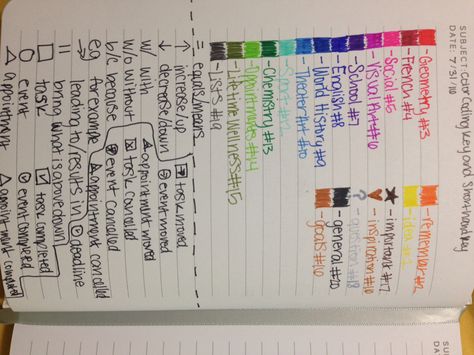 SUBJECT: color coding key and shorthand key
DATE: 7/31/10
-Geometry #3 -remember #2
-French #4 -idea #1
-Social #5 -important #17
-Visual Art #6 -inspiration #16
-School #7 -question #18
-English #8 -general #20
-World History #9 -goals
-Theater Art #10
-Sport #12
-Chemistry #13
-Opportunities #14
-Lifetime Wellness #15
-Lists #19
= equals/means
↑ increase/up task moved
↓ decrease/down event moved
w/ with appointment moved
w/o without task cancelled
b/c because event cancelled
eg for example appointment cancelled
→ leading to/results in deadline
|| bring what is above down
□ task ☑ task completed
○ event event completed
△ appointment appointment completed
SUBJECT:
DATE: